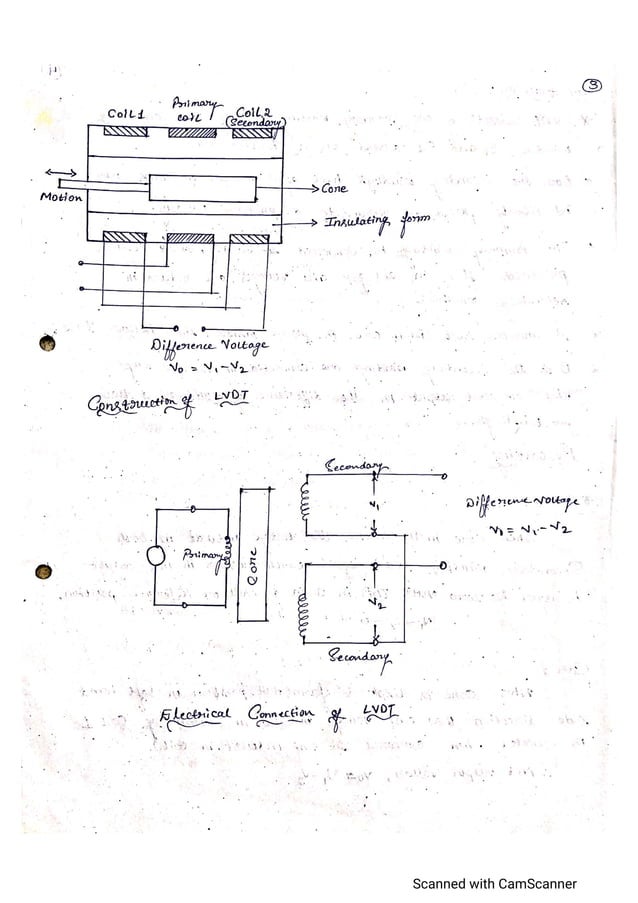 3
Coil 1
Primary
coil
Coil 2
(Secondary)
Motion
Core
Insulating form
Difference Voltage
V₀ = V₁ - V₂
Construction of LVDT
Secondary
V₁
Difference Voltage
V₀ = V₁ - V₂
Primary
Core
V₂
Secondary
Electrical Connection of LVDT
Scanned with CamScanner